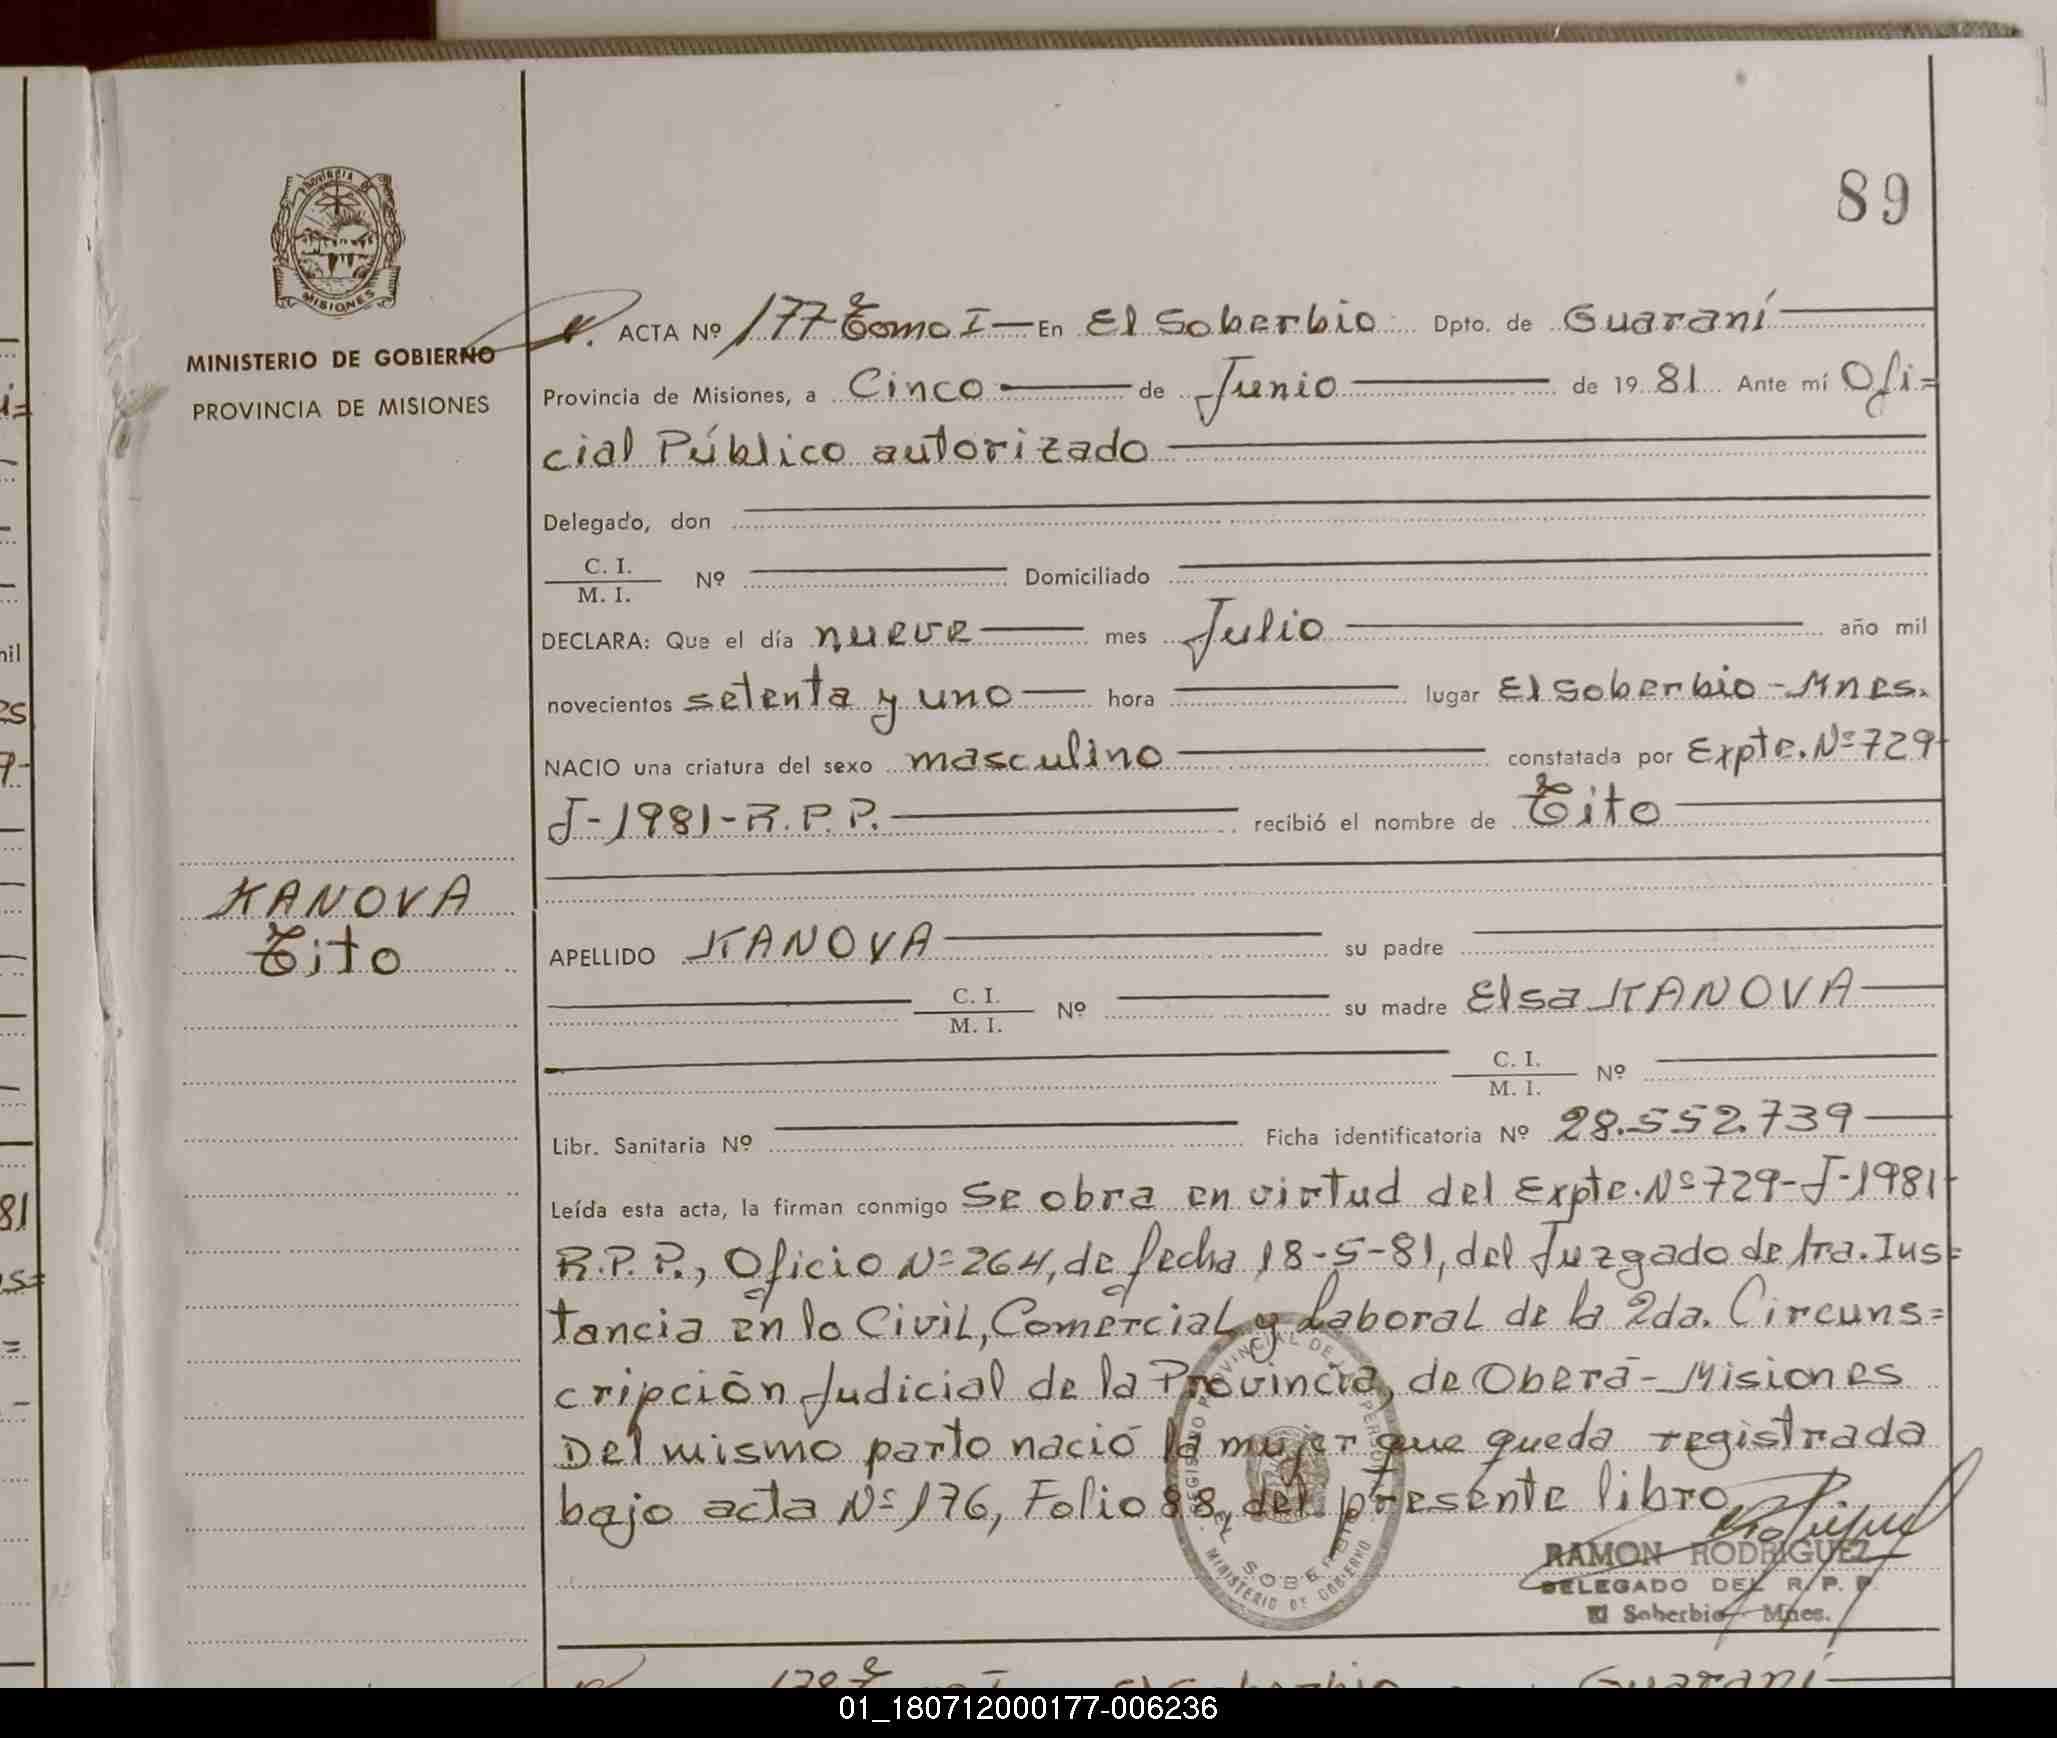 89
PROVINCIA DE
MISIONES
MINISTERIO DE GOBIERNO
PROVINCIA DE MISIONES
N. ACTA Nº 177 Tomo I — En El Soberbio Dpto. de Guaraní
Provincia de Misiones, a Cinco de Junio de 19 81 Ante mí Ofi=
cial Público autorizado
Delegado, don
C. I.
M. I. Nº Domiciliado
DECLARA: Que el día nueve mes Julio año mil
novecientos setenta y uno hora lugar El Soberbio - Mnes.
NACIO una criatura del sexo masculino constatada por Expte. Nº 729-
J-1981-R.P.P. recibió el nombre de Tito
KANOVA
Tito
APELLIDO KANOVA su padre
C. I.
M. I. Nº su madre Elsa KANOVA
C. I.
M. I. Nº
Libr. Sanitaria Nº Ficha identificatoria Nº 28.552.739
Leída esta acta, la firman conmigo Se obra en virtud del Expte. Nº 729-J-1981-
R.P.P., Oficio Nº 264, de fecha 18-5-81, del Juzgado de 1ra. Ins=
tancia en lo Civil, Comercial y Laboral de la 2da. Circuns=
cripción Judicial de la Provincia, de Oberá - Misiones
Del mismo parto nació la mujer que queda registrada
bajo acta Nº 176, Folio 88, del presente libro.
REGISTRO PROVINCIAL DE LAS PERSONAS
EL SOBERBIO
MINISTERIO DE GOBIERNO
RAMON RODRIGUEZ
DELEGADO DEL R. P. P.
El Soberbio - Mnes.
El Soberbio Guaraní
01_180712000177-006236